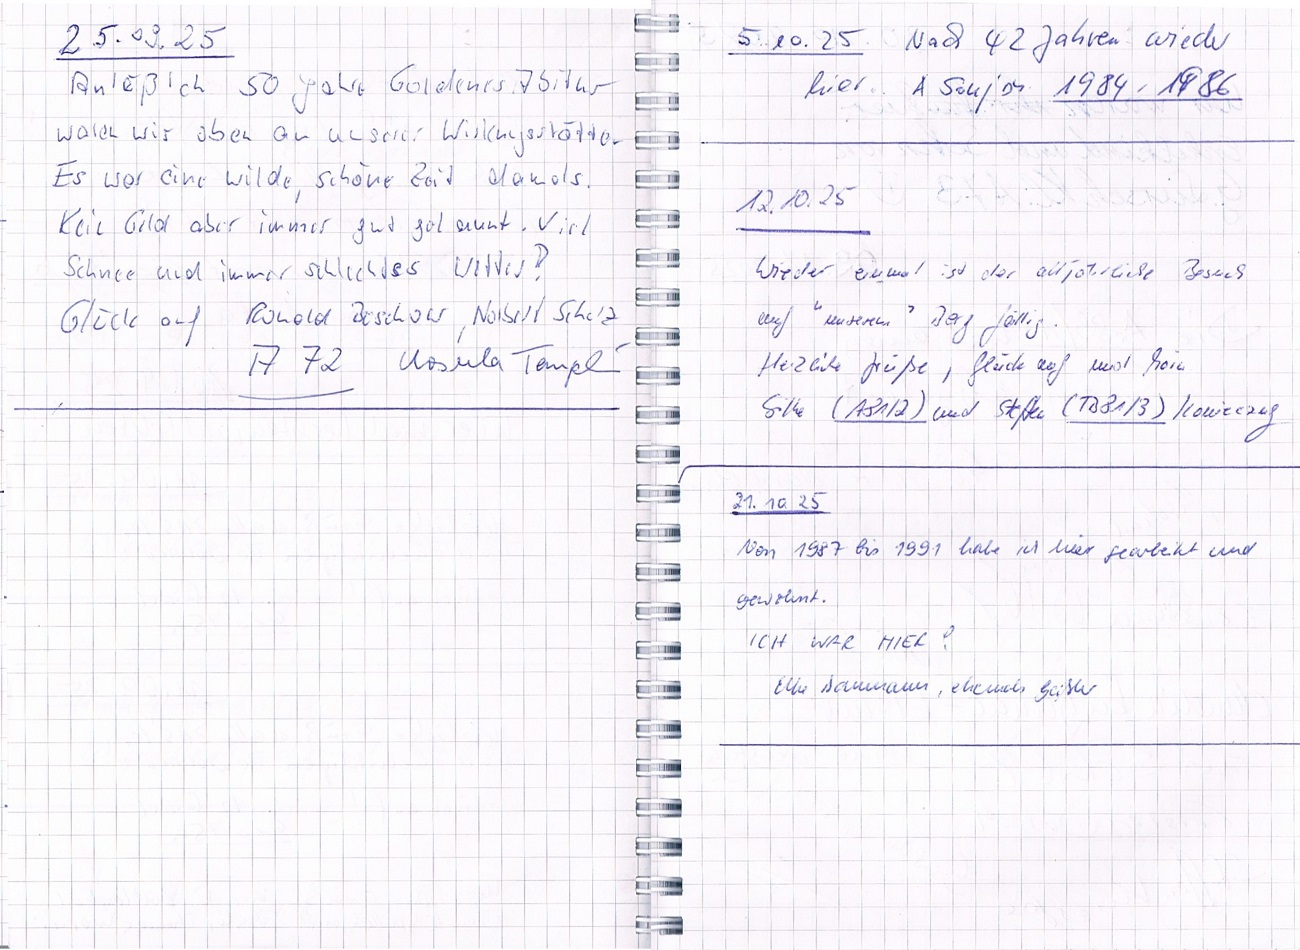 25.09.25
Anläßlich 50 Jahre Goldenes Abitur
waren wir oben an unserer Wirkungsstätte.
Es war eine wilde, schöne Zeit damals.
Kein Geld aber immer gut gelaunt. Viel
Schnee und immer schlechtes Wetter!
Glück auf Ronald Beschow, Norbert Scholz
A 72 Ursula
5.10.25 Nach 42 Jahren wieder
hier. A 1984 - 1986
12.10.25
Wieder einmal ist der alljährliche Besuch
auf "unserem" Berg fällig.
Herzliche Grüße, Glück auf und Moin
Silke (A81/2) und Steffen (TB81/3) Konieczny
21.10.25
Von 1987 bis 1991 habe ich hier gearbeitet und
gewohnt.
ICH WAR HIER!
Elke Baumann, ehemals